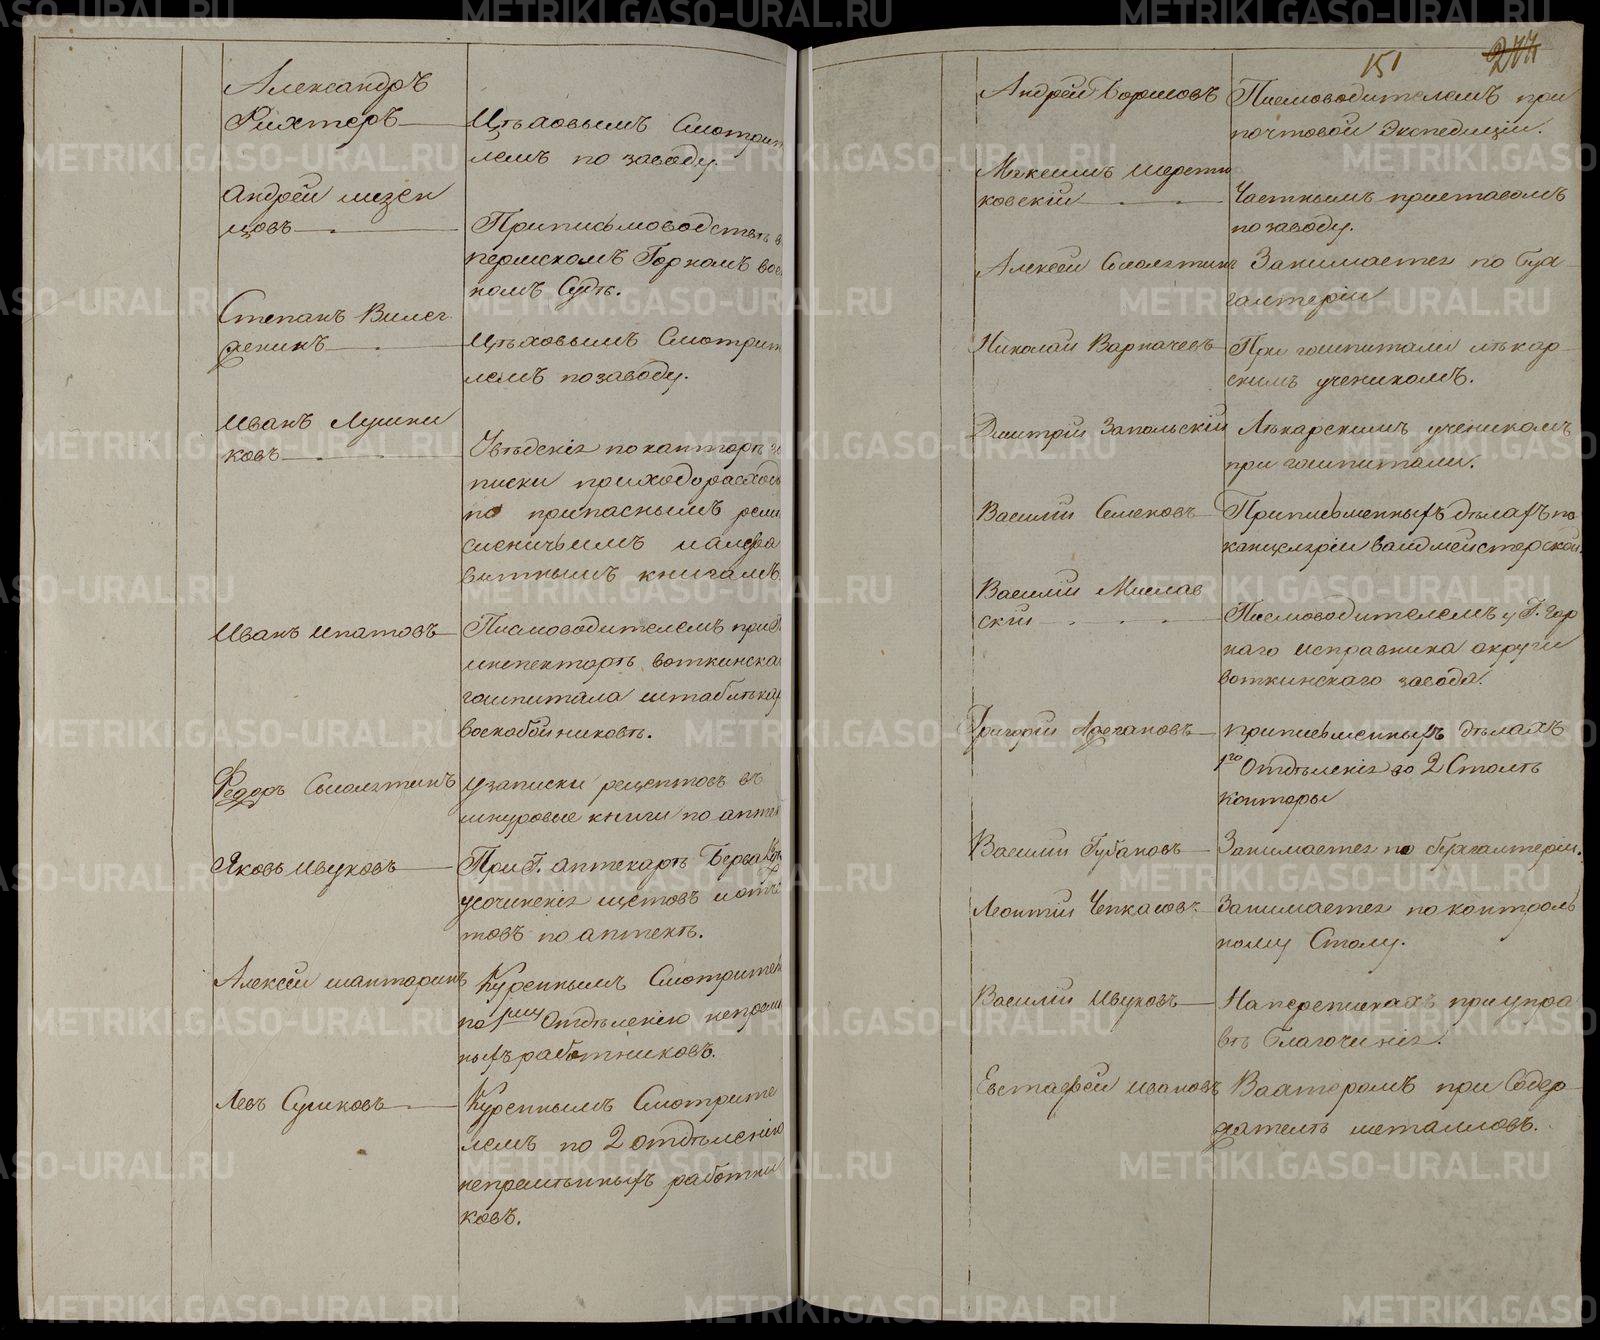 Александръ
Рихтеръ — Цѣховымъ Смотрите
лемъ по заводу.
Андрей мизен
цовъ — При письмоводствѣ в
пермскомъ Горномъ вое
номъ Судѣ.
Степанъ Вилег
женинъ — Цѣховымъ Смотрит
лемъ по заводу.
Иванъ Лушни
ковъ — Увѣденія по канторѣ за
писки приходорасход
по припаснымъ реми
сленичьимъ и алфа
витнымъ книгамъ.
Иванъ Ипатовъ — Писмоводителемъ при Г.
инспекторѣ воткинска
гошпиталя штаблѣкар
воскобойниковѣ.
Федоръ Смолятинъ у записки рецептовъ въ
шнуровые книги по аптек
Яковъ Ивуковъ — При Г. аптекарѣ
усочиненія щетовъ и отче
товъ по аптекѣ.
Алексей шантаринъ Куреннымъ Смотрител
по 1му Отдѣленію непремн
ныхъ работниковъ.
Левъ Суриковъ — Куреннымъ Смотрите
лемъ по 2 отдѣленію
непремѣнныхъ работни
ковъ.
151 277
Андрей Борисовъ Писмоводителемъ при
почтовой Экспедиціи.
Максимъ Шерстн
ковскій — Частнымъ приставомъ
по заводу.
Алексей Смолятинъ Занимается по Буха
галтеріи
Николай Варначевъ — При гошпитали лѣкар
скимъ ученикомъ.
Дмитрій Запольскій Лѣкарскимъ ученикомъ
при гошпитали.
Василій Семеновъ — При письменныхъ дѣлахъ по
канцеляріи вагмейстерской.
Василій Мислав
скій — Писмоводителемъ у Г. Гор
наго исправника округи
воткинскаго завода.
Григорій — при письменныхъ дѣлахъ
1го Отдѣленія во 2 Столѣ
конторы
Василій Губановъ — Занимается по бухгалтеріи.
Леонтій Чепкасовъ — Занимается по контроль
ному Столу.
Василій Ивуковъ — На перепискахъ при упра
вѣ благочинія.
Евстафей Ивановъ Вахтеромъ при Содер
жателѣ металловъ.